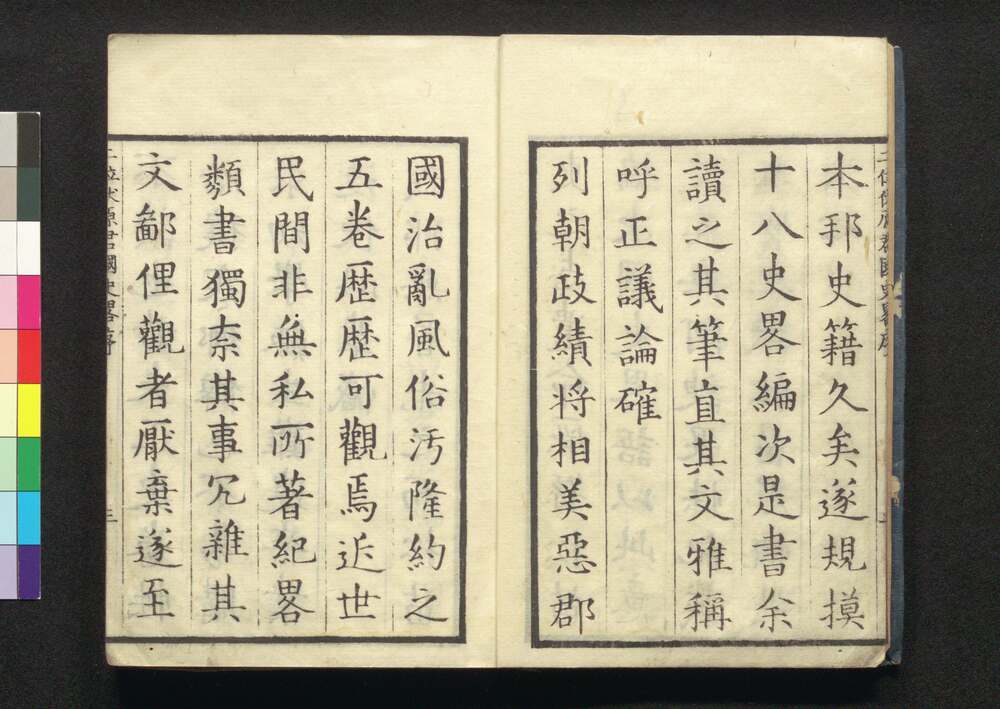 本邦史籍久矣遂規摸
十八史畧編次是書余
讀之其筆直其文雅稱
呼正議論確
列朝政績将相美惡郡
國治亂風俗汚隆約之
五卷歴歴可觀焉近世
民間非無私所著紀畧
類書獨柰其事冗雜其
文鄙俚觀者厭棄遂至